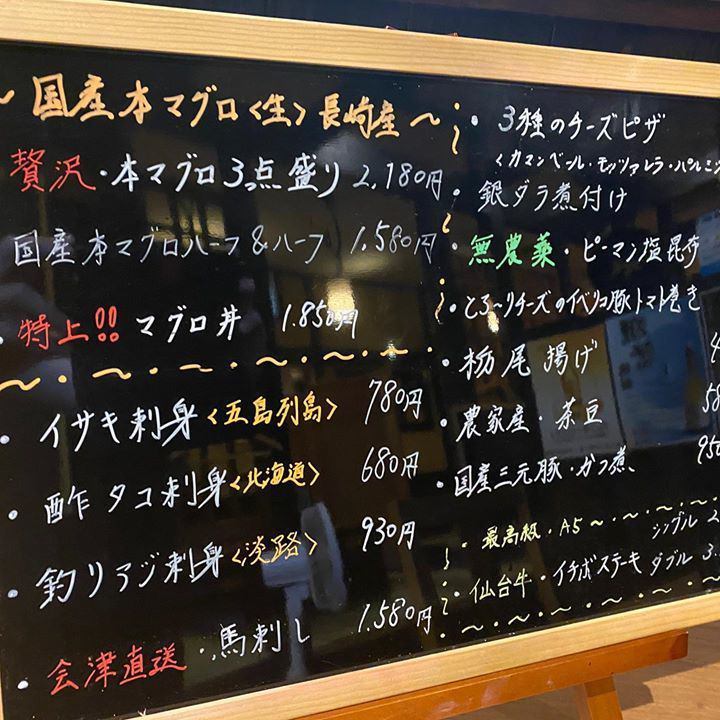 ～国産本マグロ<生>長崎産～
贅沢・本マグロ3点盛り 2,180円
国産本マグロハーフ&ハーフ 1,580円
・特上!! マグロ丼 1,850円
・イサキ刺身<五島列島> 780円
・酢タコ刺身<北海道> 680円
・釣りアジ刺身<淡路> 930円
・会津直送・馬刺し 1,580円
・3種のチーズピザ
<カマンベール・モッツァレラ・パルミジ
・銀ダラ煮付け
・無農薬・ピーマン塩昆布
・とろ～りチーズのイベリコ豚トマト巻き
・栃尾揚げ 4
・農家産・茶豆 58
・国産三元豚・かつ煮、 950
・最高級・A5～ シングル 2
・仙台牛・イチボステーキ ダブル 3